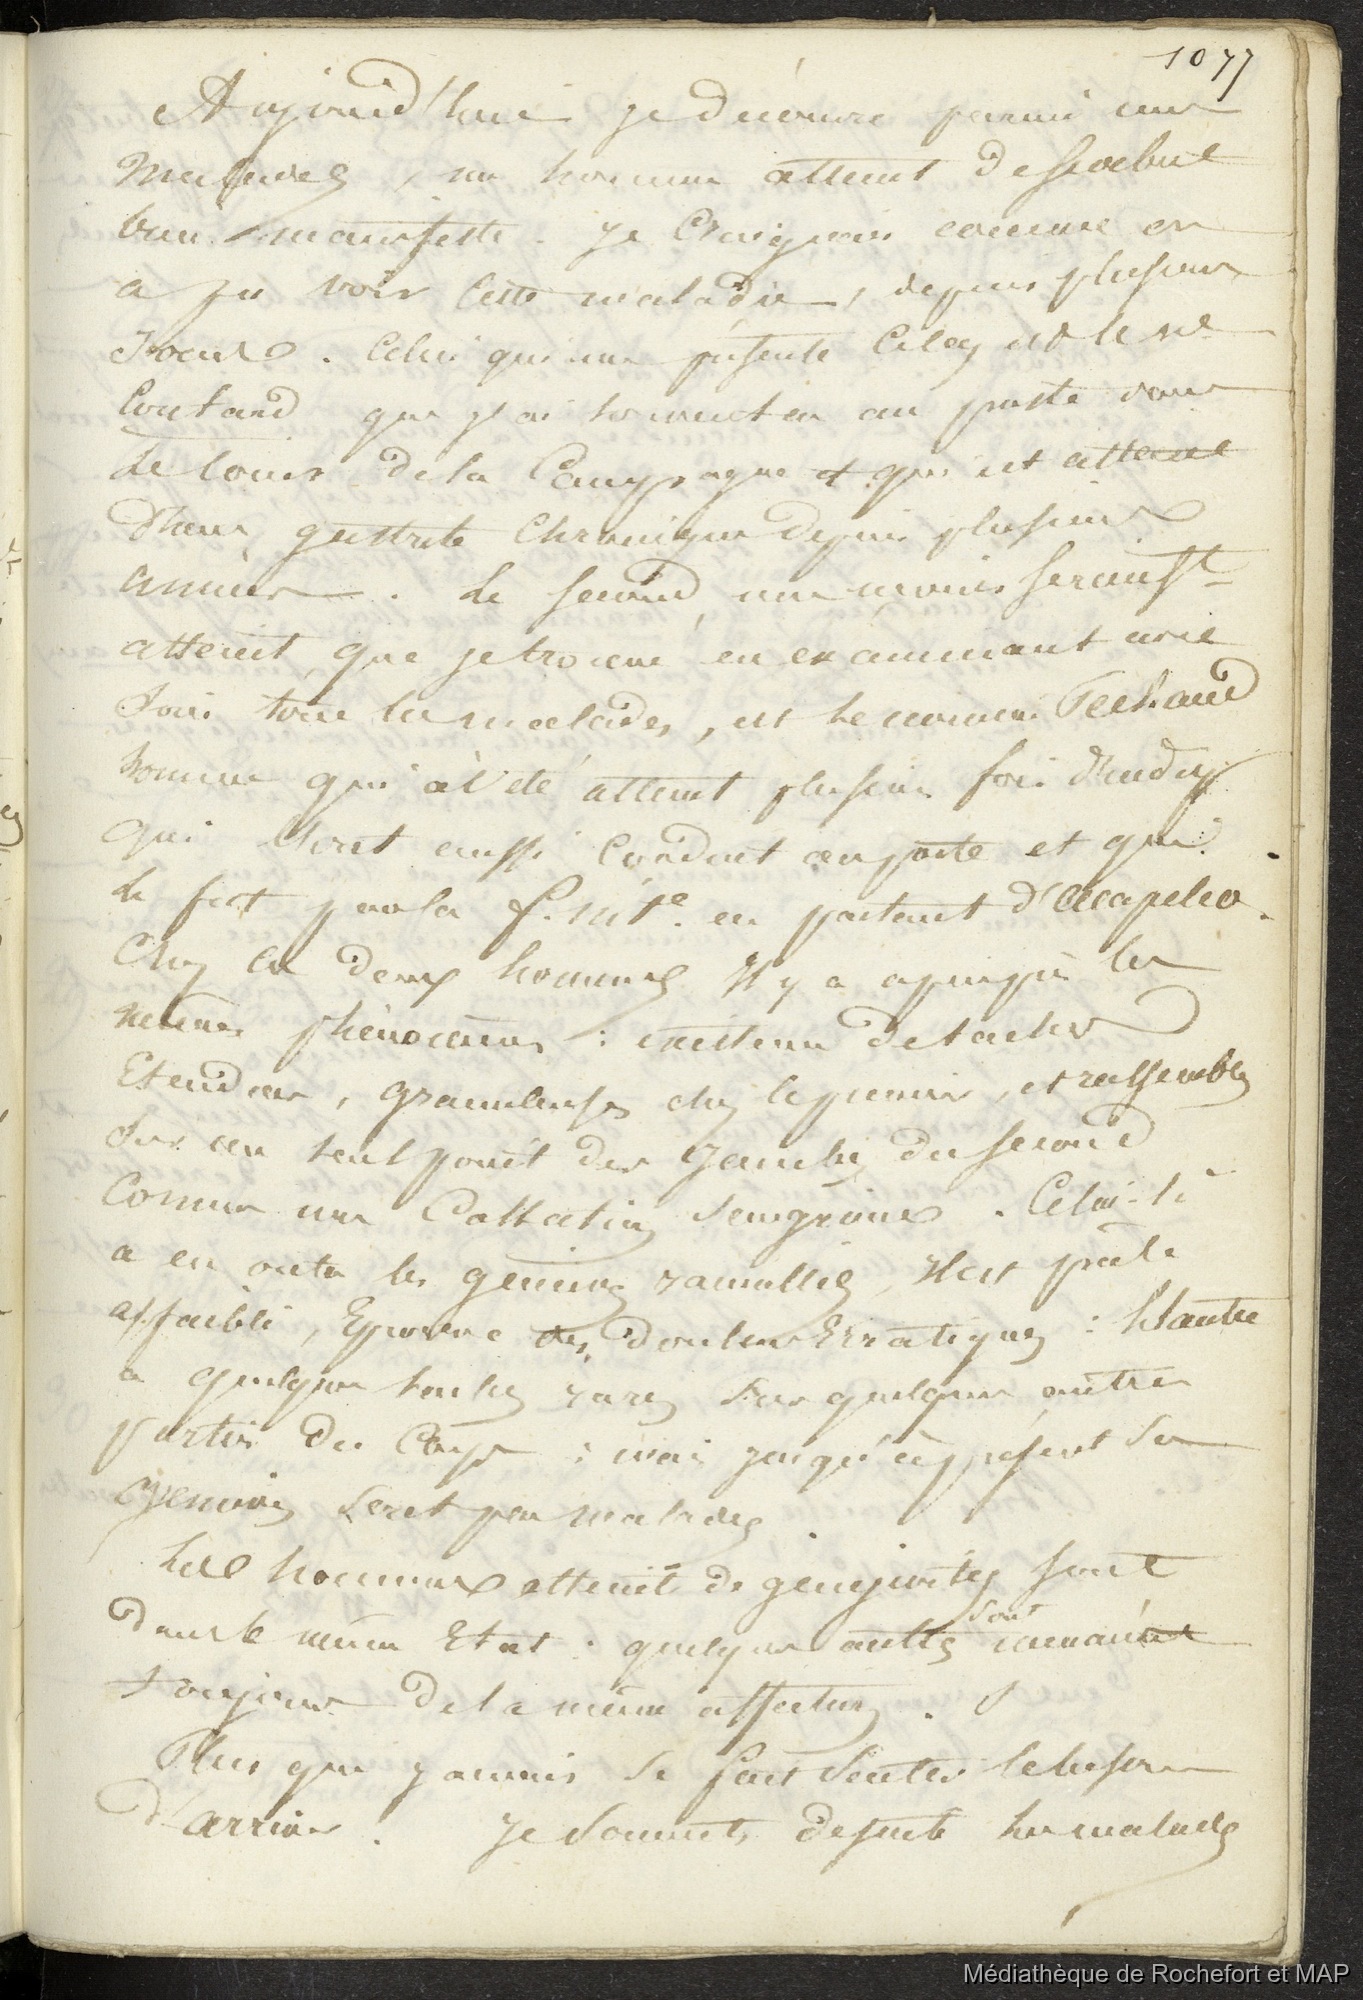 1077
Aujourd'hui je découvre parmi mes
malades, un homme atteint de scorbut
bien manifeste. Je craignais comme on
a pu voir cette maladie, depuis plusieurs
jours. Celui qui me présente cela est le né
Coutand que j'ai vu au poste dans
le cours de la Campagne et qui est atteint
d'une gastrite chronique depuis plusieurs
années. Le second, moins
atteint, que je trouve en examinant avec
soin tous les malades, est le nommé Techaud
homme qui a été atteint plusieurs fois
qui s'est aussi conduit au poste et qui
le fut par la en partant d'Acapulco.
Chez ces deux hommes il y a à peu près les
mêmes phénomènes : existence de taches
étendues, granuleuses chez le premier, et rassemblées
sur un seul point des jambes du second
comme une sanguine. Celui-ci
a en outre les gencives ramollies, il est pâle
affaibli, éprouve des douleurs erratiques : l'autre
a quelques taches rares sur quelques autres
parties du corps : mais jusqu'à présent ses
gencives sont peu malades.
Les hommes atteints de gengivites sont
dans le même état : quelques autres sont
toujours de la même affection.
Plus que jamais se fait sentir le besoin
d'arriver. Je soumets de suite les malades
Médiathèque de Rochefort et MAP